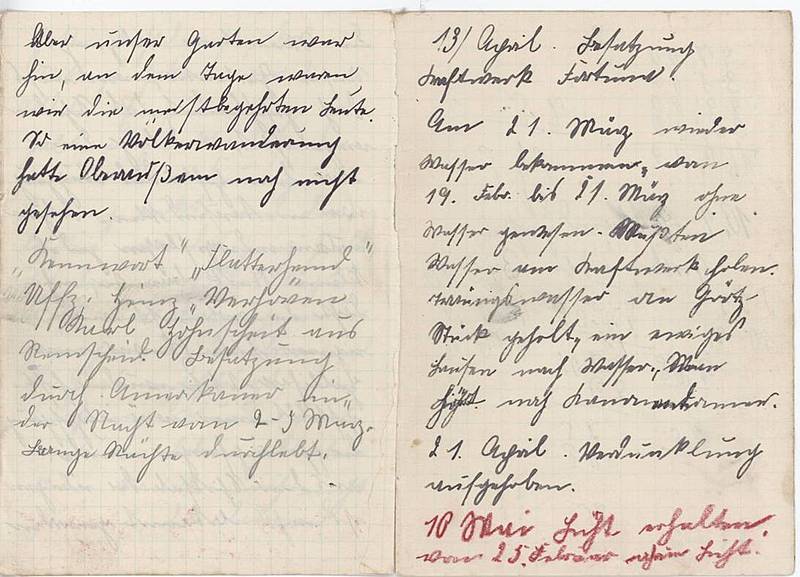 Aber unser Garten war
hin, an dem Tage waren
wir die meistbegehrten Leute.
So eine Völkerwanderung
hatte Oberaußem noch nicht
gesehen.
„Kennwort" „Flatterhemd"
Uffz. Heinz Verhöven
Karl Höhnscheit aus
Remscheid. Besatzung
durch Amerikaner in
der Nacht vom 2-3 März.
Bange Nächte durchlebt.
13/ April. Besatzung
Kraftwerk Fortuna.
Am 21. März wieder
Wasser bekommen, vom
19. Febr. bis 21. März ohne
Wasser gewesen. Mußten
Wasser am Kraftwerk holen.
wasser an
Stück geholt, ein ewiges
Laufen nach Wasser. Man
noch Kanonendonner.
21. April. Verdunklung
aufgehoben.
10 Mai Licht erhalten.
vom 25. Februar ohne Licht.